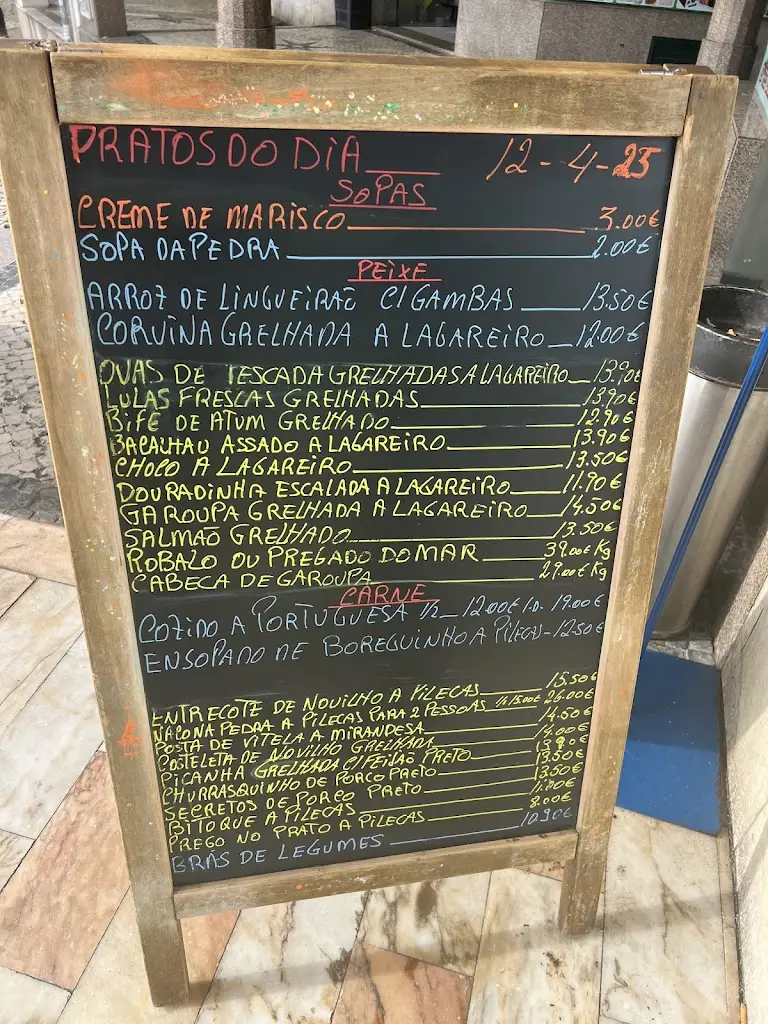 PRATOS DO DIA 12-4-25
SOPAS
CREME DE MARISCO 3.00€
SOPA DA PEDRA 2.00€
PEIXE
ARROZ DE LINGUEIRÃO C/ GAMBAS 13.50€
CORVINA GRELHADA A LAGAREIRO 12.00€
OVAS DE PESCADA GRELHADAS A LAGAREIRO 13.90€
LULAS FRESCAS GRELHADAS 13.90€
BIFE DE ATUM GRELHADO 12.90€
BACALHAU ASSADO A LAGAREIRO 13.90€
CHOCO A LAGAREIRO 13.50€
DOURADINHA ESCALADA A LAGAREIRO 11.90€
GAROUPA GRELHADA A LAGAREIRO 14.50€
SALMÃO GRELHADO 13.50€
ROBALO OU PREGADO DO MAR 39.00€ Kg
CABECA DE GAROUPA 29.00€ Kg
CARNE
COZIDO A PORTUGUESA 1/2 12.00€ 1.D. 19.00€
ENSOPADO DE BOREGUINHO A PILECAS - 12.50€
ENTRECOTE DE NOVILHO A PILECAS 15.50€
NACO NA PEDRA A PILECAS PARA 2 PESSOAS 1/2 15.00€ 26.00€
POSTA DE VITELA A MIRANDESA 14.50€
COSTELETA DE NOVILHO GRELHADA 14.00€
PICANHA GRELHADA C/ FEIJÃO PRETO 13.90€
CHURRASQUINHO DE PORCO PRETO 13.50€
SECRETOS DE PORCO PRETO 13.50€
BITOQUE A PILECAS 11.00€
PREGO NO PRATO A PILECAS 8.00€
BRAS DE LEGUMES 10.90€